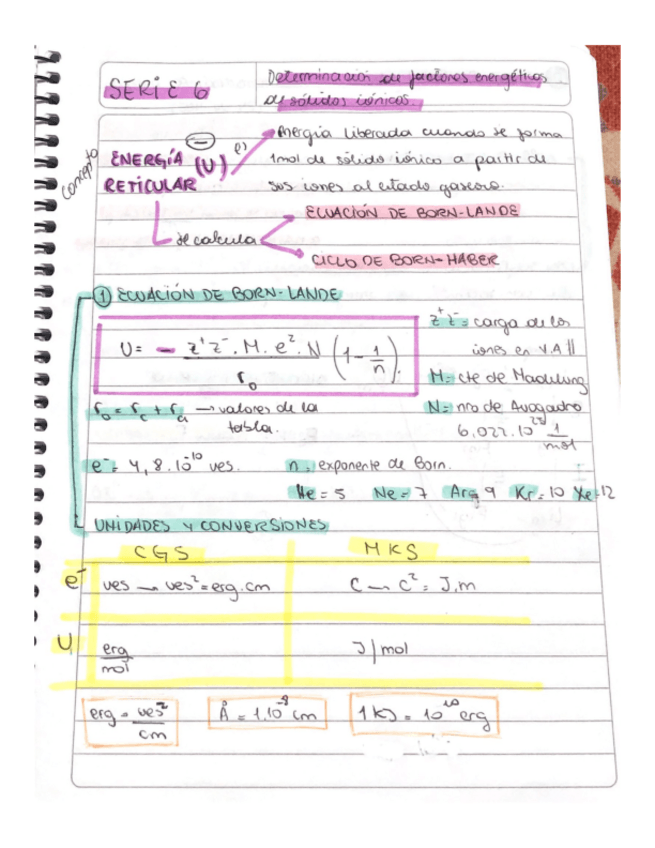 SERIE 6
Determinación de factores energéticos
de sólidos iónicos.
Concepto
ENERGÍA (U) RETICULAR
energía liberada cuando se forma
1mol de sólido iónico a partir de
sus iones al estado gaseoso.
se calcula
ECUACIÓN DE BORN-LANDE
CICLO DE BORN-HABER
① ECUACIÓN DE BORN-LANDE
U = - z⁺z⁻. M. e². N / r₀ (1 - 1/n).
z⁺z⁻ = carga de los
iones en V.A //
M = cte de Madelung
N = nro de Avogadro
6,022.10²³ 1/mol
r₀ = rc + ra → valores de la
tabla.
e⁻ = 4,8.10⁻¹⁰ ves.
n = exponente de Born.
He = 5 Ne = 7 Ar = 9 Kr = 10 Xe = 12
UNIDADES Y CONVERSIONES
CGS MKS
e⁻ ves → ves² = erg.cm C → C² = J.m
U erg/mol J/mol
erg = ves²/cm Å = 1.10⁻⁸ cm 1KJ = 10¹⁰ erg